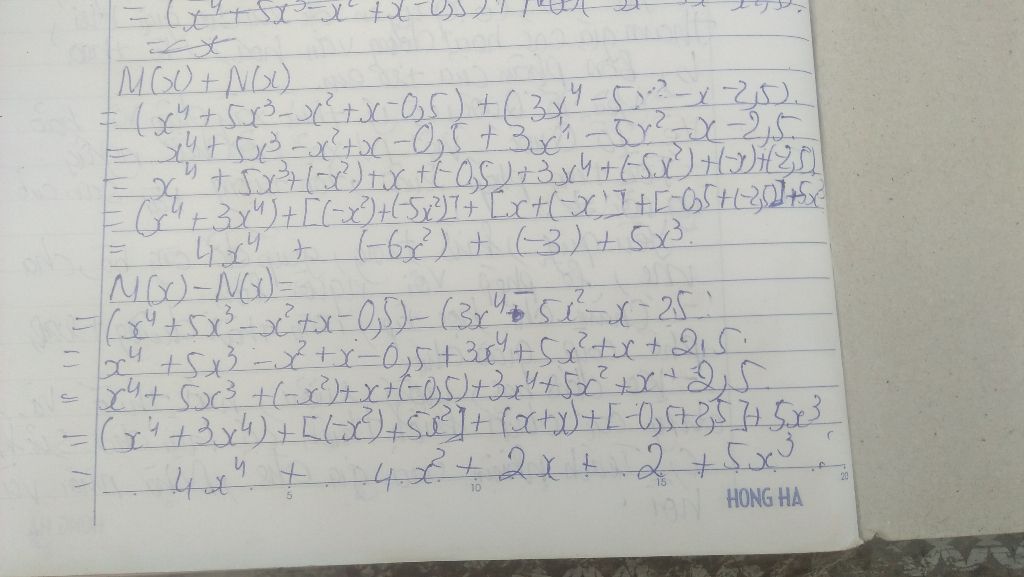 = (x⁴ + 5x³ - x² + x - 0,5) +
= x
M(x) + N(x)
= (x⁴ + 5x³ - x² + x - 0,5) + (3x⁴ - 5x² - x - 2,5).
= x⁴ + 5x³ - x² + x - 0,5 + 3x⁴ - 5x² - x - 2,5.
= x⁴ + 5x³ + (-x²) + x + (-0,5) + 3x⁴ + (-5x²) + (-x) + (-2,5)
= (x⁴ + 3x⁴) + [(-x²) + (-5x²)] + [x + (-x)] + [-0,5 + (-2,5)] + 5x³
= 4x⁴ + (-6x²) + (-3) + 5x³.
M(x) - N(x) =
= (x⁴ + 5x³ - x² + x - 0,5) - (3x⁴ - 5x² - x - 2,5
= x⁴ + 5x³ - x² + x - 0,5 + 3x⁴ + 5x² + x + 2,5.
= x⁴ + 5x³ + (-x²) + x + (-0,5) + 3x⁴ + 5x² + x + 2,5
= (x⁴ + 3x⁴) + [(-x²) + 5x²] + (x + x) + [-0,5 + 2,5] + 5x³
= 4x⁴ + 4x² + 2x + 2 + 5x³.
5 10 15 20
HONG HA